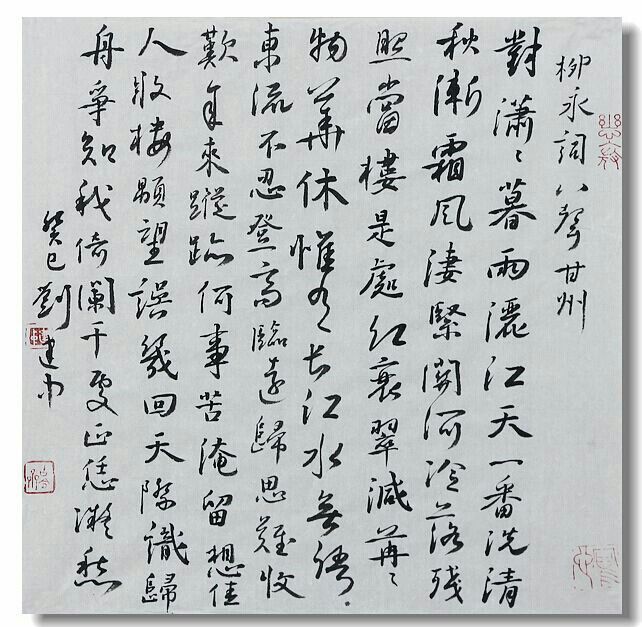 柳永詞八聲甘州
對瀟〻暮雨灑江天一番洗清
秋漸霜風淒緊關河冷落殘
照當樓是處紅衰翠減苒〻
物華休惟有長江水無語
東流不忍登高臨遠歸思難收
歎年來蹤跡何事苦淹留想佳
人妝樓顒望誤幾回天際識歸
舟爭知我倚闌干處正恁凝愁
癸巳劉建